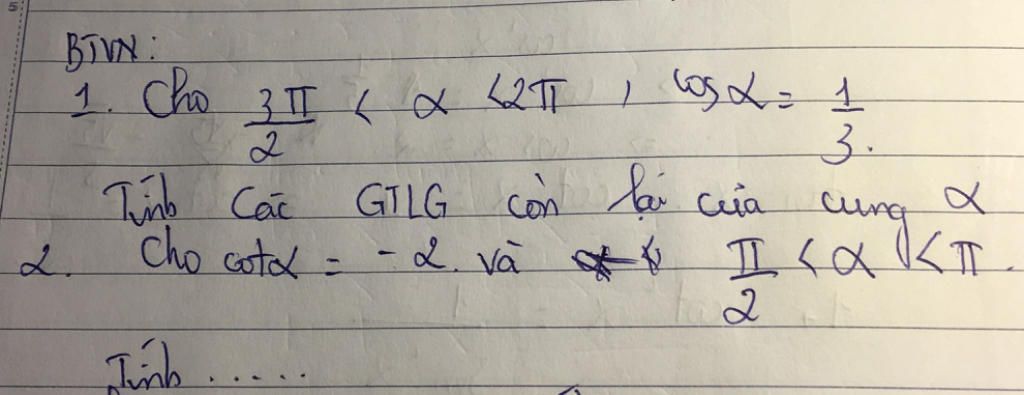 BTVN:
1. Cho 3π/2 < α < 2π , cosα = 1/3.
Tính Các GTLG còn lại của cung α
2. Cho cotα = -2. và π/2 < α < π.
Tính .....